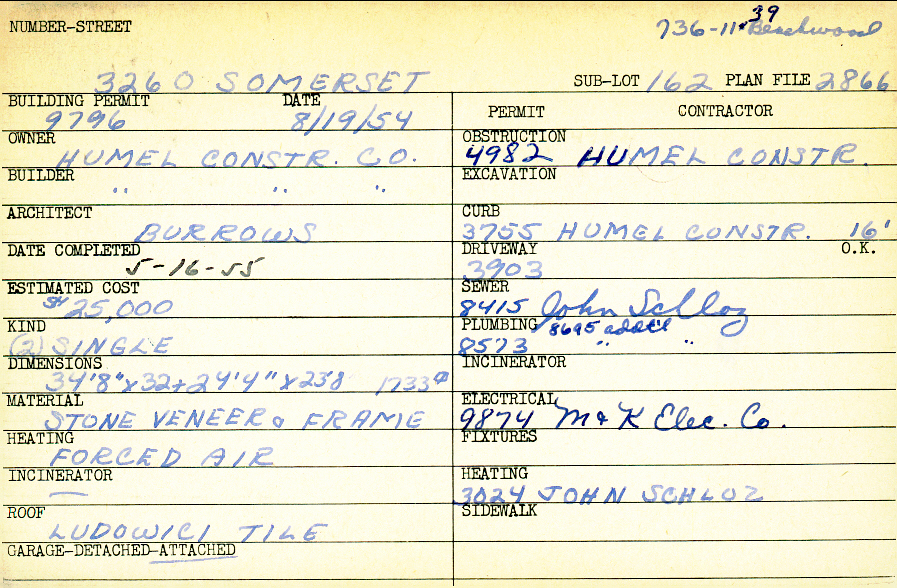 NUMBER-STREET
39
736-11- Beachwood
3260 SOMERSET
SUB-LOT 162 PLAN FILE 2866
BUILDING PERMIT DATE
9796 8/19/54
PERMIT CONTRACTOR
OWNER
HUMEL CONSTR. CO.
OBSTRUCTION
4982 HUMEL CONSTR.
BUILDER
" " "
EXCAVATION
ARCHITECT
BURROWS
CURB
3755 HUMEL CONSTR. 16'
DATE COMPLETED
5-16-55
DRIVEWAY O.K.
3903
ESTIMATED COST
$25,000
SEWER
8415 John Schloz
KIND
(2) SINGLE
PLUMBING 8695 addt'l
8573 " "
DIMENSIONS
34'8"x32+24'4"x23'8 1733
INCINERATOR
MATERIAL
STONE VENEER & FRAME
ELECTRICAL
9874 M & K Elec. Co.
HEATING
FORCED AIR
FIXTURES
INCINERATOR
—
HEATING
3024 JOHN SCHLOZ
ROOF
LUDOWICI TILE
SIDEWALK
GARAGE-DETACHED-ATTACHED